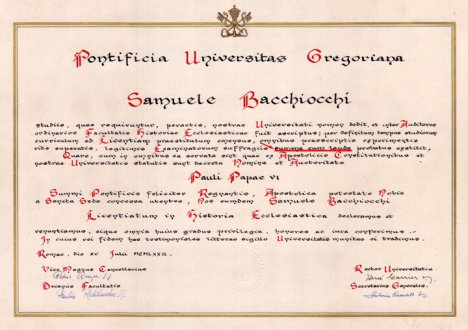 Pontificia Universitas Gregoriana
Samuele Bacchiocchi
studiis, quae requiruntur, peractis, nostrae Universitati nomen dedit, et inter Auditores
ordinarios Facultatis Historiae Ecclesiasticae fuit ascriptus; per definitum tempus studiorum
curriculum ad Licentiam praestitutum emensus, omnibus praescriptis experimentis
rite superatis, legitimis Examinatorum suffragiis summa cum laude probatus exstitit,
Quare, cum in omnibus ea servata sint quae ex Apostolicis Constitutionibus et
nostrae Universitatis statutis sunt Decreta Nomine et Auctoritate
Pauli Papae VI
Summi Pontificis feliciter Regnantis, Apostolica potestate Nobis
a Sancta Sede concessa utentes, Nos eumdem Samuele Bacchiocchi
Licentiatum in Historia Ecclesiastica declaramus et
renuntiamus, eique omnia huius gradus privilegia, honores ac iura conferimus.
In cuius rei fidem has testimoniales litteras sigillo Universitatis munitas ei tradimus.
Romae, die XV Julii MCMLXXII
Vice Magnus Cancellarius
Rector Universitatis
Decanus Facultatis
Secretarius Generalis